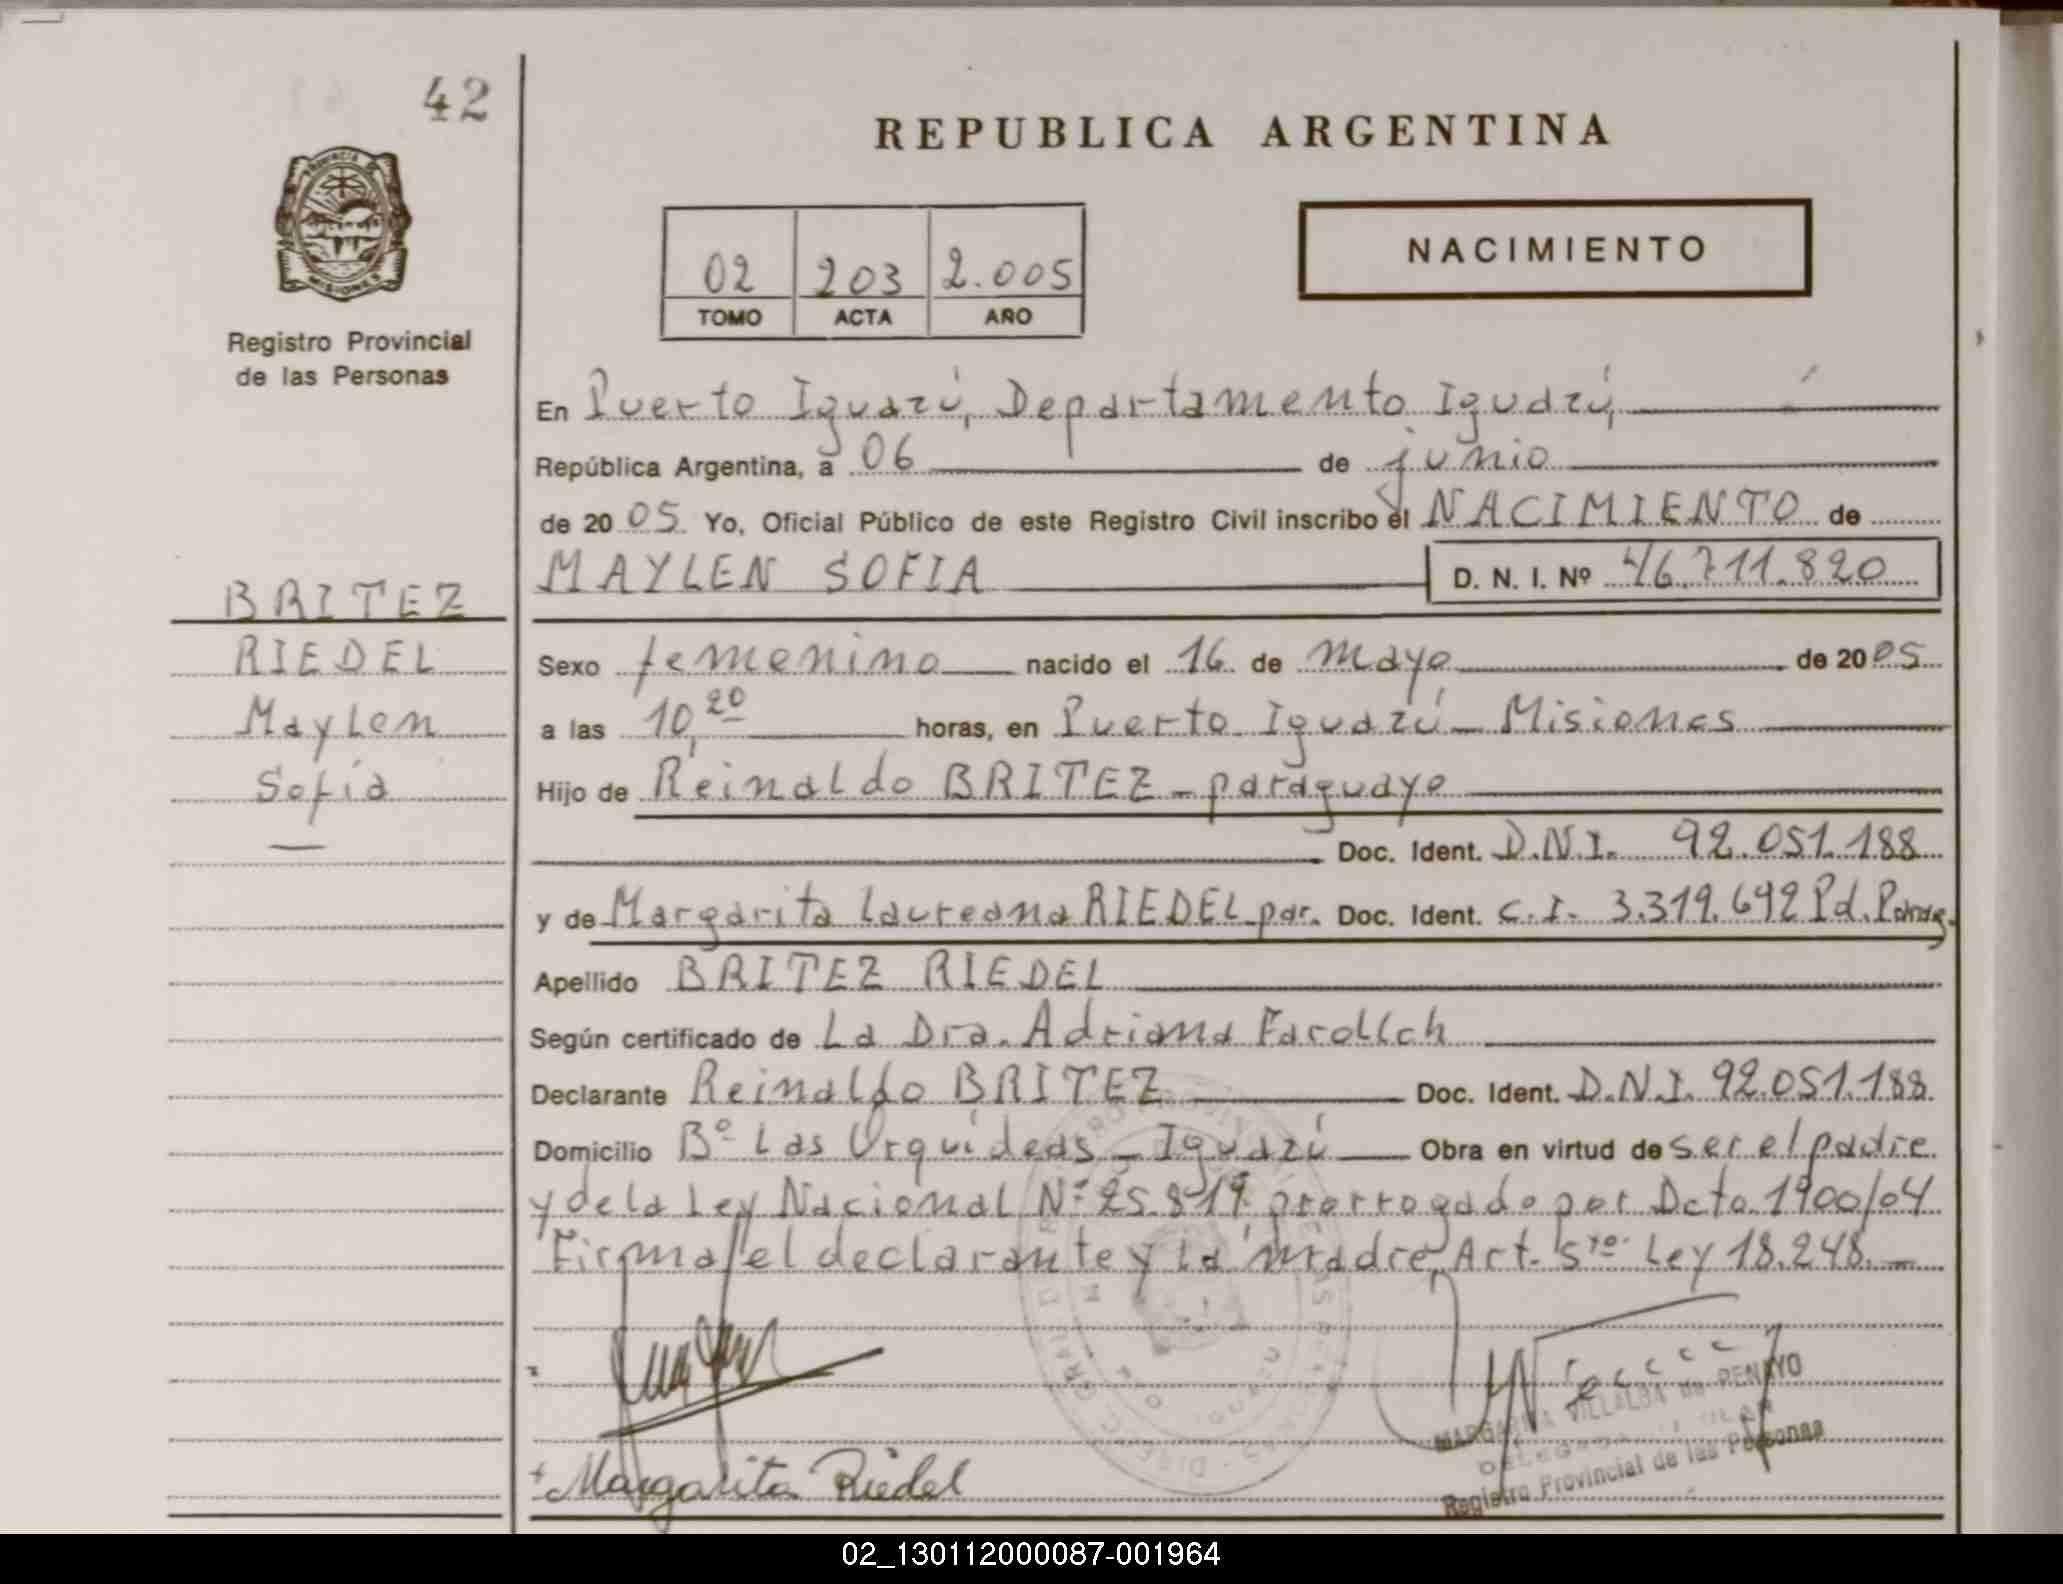 42
REPUBLICA ARGENTINA
PROVINCIA DE
MISIONES
NACIMIENTO
02 203 2.005
TOMO ACTA AÑO
Registro Provincial
de las Personas
En Puerto Iguazú, Departamento Iguazú,
República Argentina, a 06 de junio
de 2005 Yo, Oficial Público de este Registro Civil inscribo el NACIMIENTO de
MAYLEN SOFIA D. N. I. Nº 46.711.820
BRITEZ
RIEDEL
Maylen
Sofia
Sexo femenino nacido el 16 de mayo de 2005
a las 10,20 horas, en Puerto Iguazú - Misiones
Hijo de Reinaldo BRITEZ - paraguayo
Doc. Ident. D.N.I. 92.051.188
y de Margarita Laureana RIEDEL par. Doc. Ident. C.I. 3.319.692 Pd. Parag.
Apellido BRITEZ RIEDEL
Según certificado de La Dra. Adriana
Declarante Reinaldo BRITEZ Doc. Ident. D.N.I. 92.051.188
Domicilio Bº Las Orquídeas - Iguazú Obra en virtud de ser el padre
y de la Ley Nacional Nº 25.819 prorrogado por Dcto. 1900/04
Firma el declarante y la madre. Art. 5to. Ley 18.248. -
Margarita Riedel
MARGARITA VILLALBA de PENAYO
Registro Provincial de las Personas
02_130112000087-001964